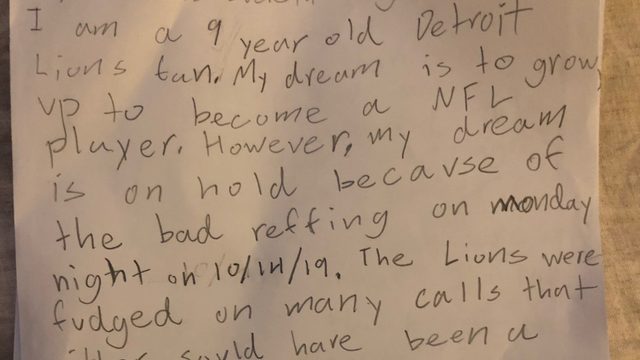 I am a 9 year old Detroit
Lions fan. My dream is to grow
up to become a NFL
player. However, my dream
is on hold because of
the bad reffing on monday
night on 10/14/19. The Lions were
fudged on many calls that
have been a